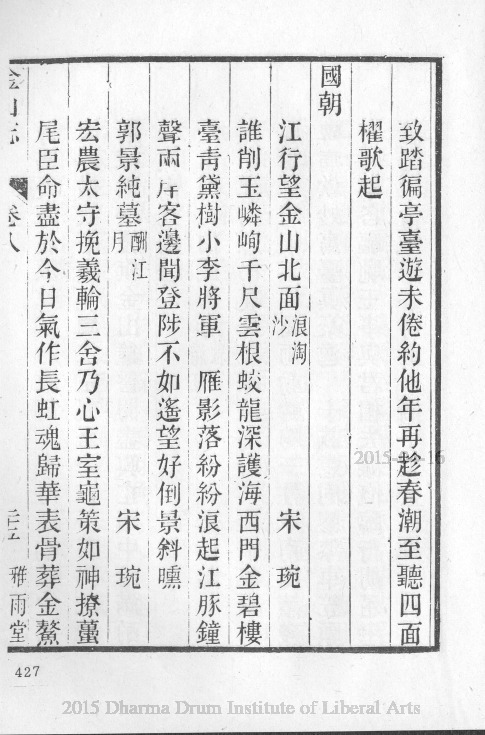 致踏徧亭臺遊未倦約他年再趁春潮至聽四面
櫂歌起
國朝
江行望金山北面 浪淘沙 宋琬
誰削玉嶙峋千尺雲根蛟龍深護海西門金碧樓
臺靑黛樹小李將軍 雁影落紛紛浪起江豚鐘
聲兩岸客邊聞登陟不如遙望好倒景斜曛
郭景純墓 酹江月 宋琬
宏農太守挽羲輪三舍乃心王室龜策如神撩蠆
尾臣命盡於今日氣作長虹魂歸華表骨葬金鰲
金山志 卷八 雅雨堂
427
2015-04-16
2015 Dharma Drum Institute of Liberal Arts